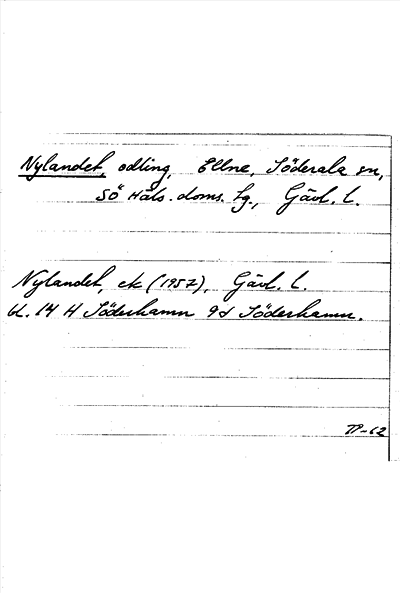 Nylandet, odling, Ellne, Söderala sn,
SÖ Häls. doms. tg., Gävl. l.
Nylandet, ek (1957), Gävl. l.
bl. 14 H Söderhamn 9d Söderhamn.
TP-62